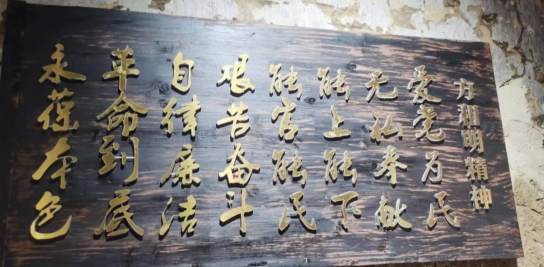 方和明精神
爱党为民
无私奉献
能上能下
能官能民
艰苦奋斗
自律廉洁
革命到底
永葆本色